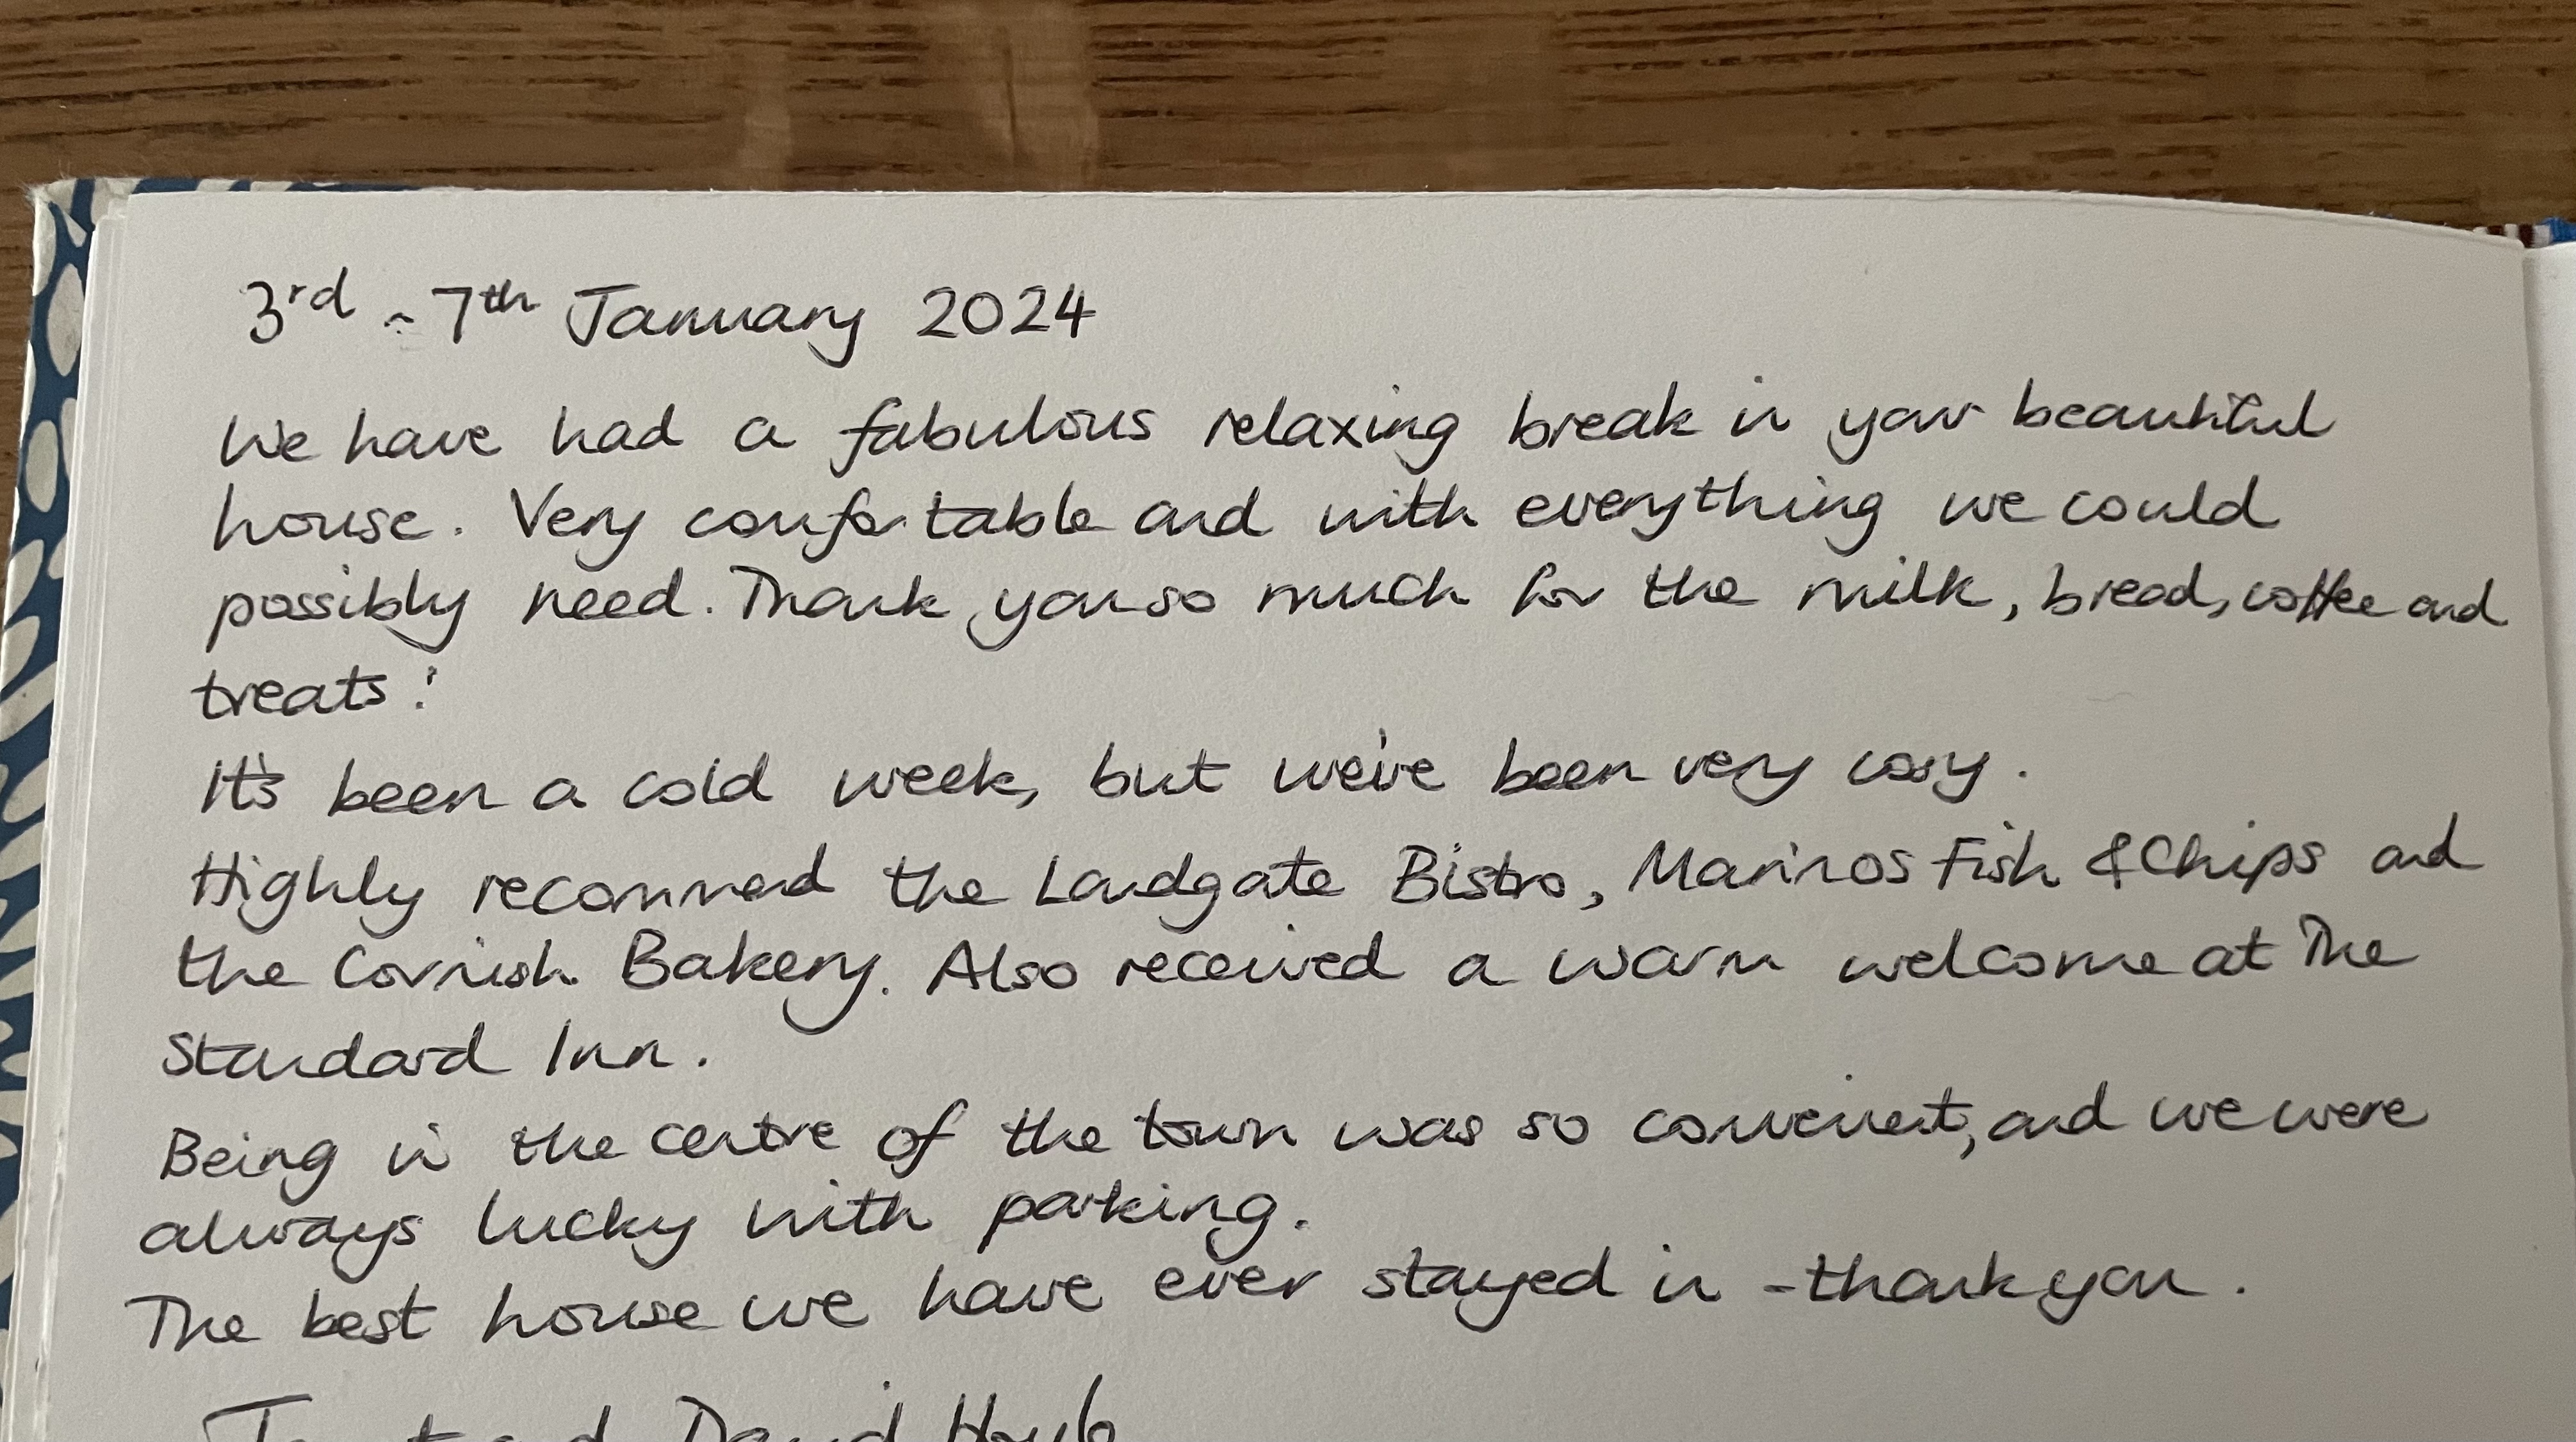 3rd - 7th January 2024
We have had a fabulous relaxing break in your beautiful
house. Very comfortable and with everything we could
possibly need. Thank you so much for the milk, bread, coffee and
treats!
It's been a cold week, but we've been very cosy.
Highly recommend the Landgate Bistro, Marinos Fish & Chips and
the Cornish Bakery. Also received a warm welcome at The
Standard Inn.
Being in the centre of the town was so convenient, and we were
always lucky with parking.
The best house we have ever stayed in - thank you.
and David